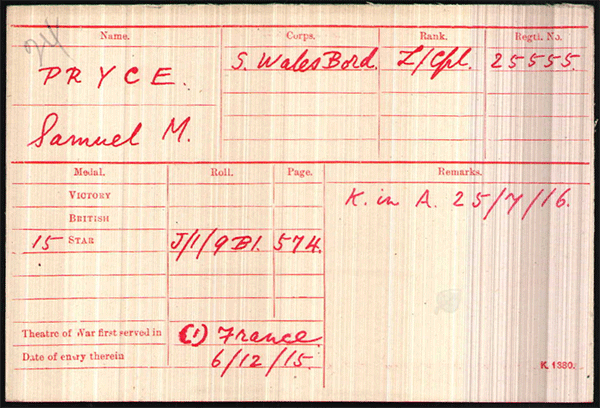 24
Name. Corps. Rank. Regtl. No.
PRYCE. S. Wales Bord. L/Cpl. 25555.
Samuel M.
Medal. Roll. Page. Remarks.
VICTORY K. in A. 25/7/16.
BRITISH
15 STAR J/1/9B1. 574.
Theatre of War first served in (1) France.
Date of entry therein 6/12/15.
K. 1380.